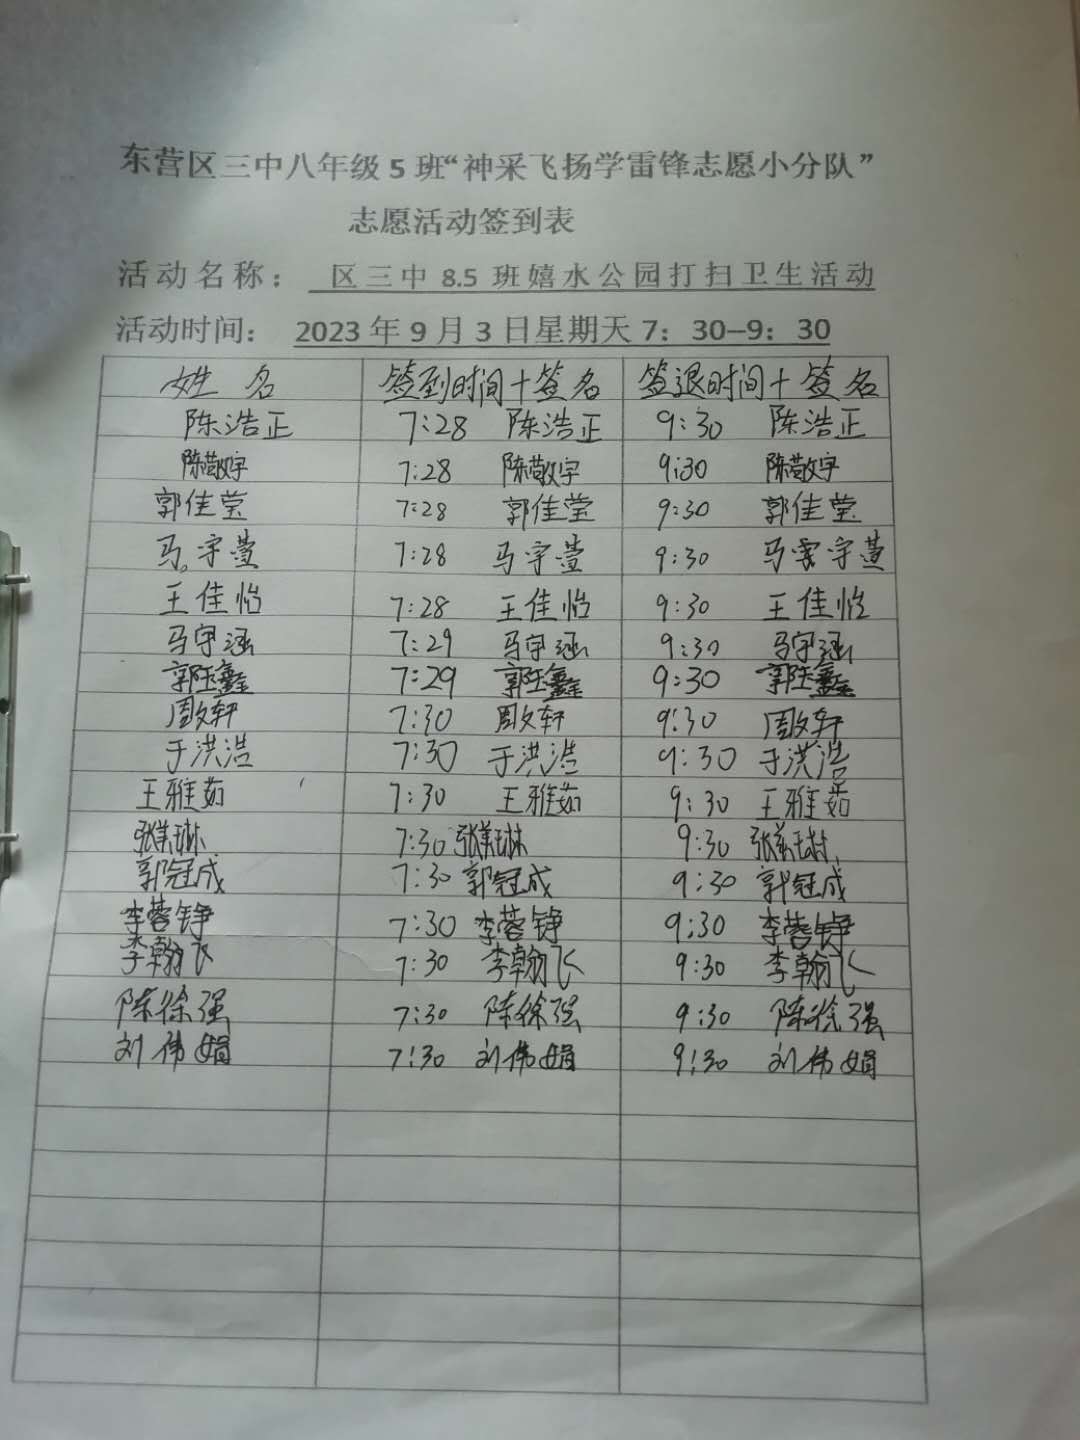 东营区三中八年级 5 班“神采飞扬学雷锋志愿小分队”
志愿活动签到表
活动名称： 区三中 8.5 班嬉水公园打扫卫生活动
活动时间： 2023 年 9 月 3 日星期天 7：30—9：30
姓名 签到时间+签名 签退时间+签名
陈浩正 7:28 陈浩正 9:30 陈浩正
陈敬宇 7:28 陈敬宇 9:30 陈敬宇
郭佳莹 7:28 郭佳莹 9:30 郭佳莹
马宇萱 7:28 马宇萱 9:30 马宇萱
王佳怡 7:28 王佳怡 9:30 王佳怡
马宇涵 7:29 马宇涵 9:30 马宇涵
郭珏鑫 7:29 郭珏鑫 9:30 郭珏鑫
周文轩 7:30 周文轩 9:30 周文轩
于洪浩 7:30 于洪浩 9:30 于洪浩
王雅茹 7:30 王雅茹 9:30 王雅茹
张美琳 7:30 张美琳 9:30 张美琳
郭冠成 7:30 郭冠成 9:30 郭冠成
李蓉铮 7:30 李蓉铮 9:30 李蓉铮
李翰飞 7:30 李翰飞 9:30 李翰飞
陈徐强 7:30 陈徐强 9:30 陈徐强
刘伟娟 7:30 刘伟娟 9:30 刘伟娟